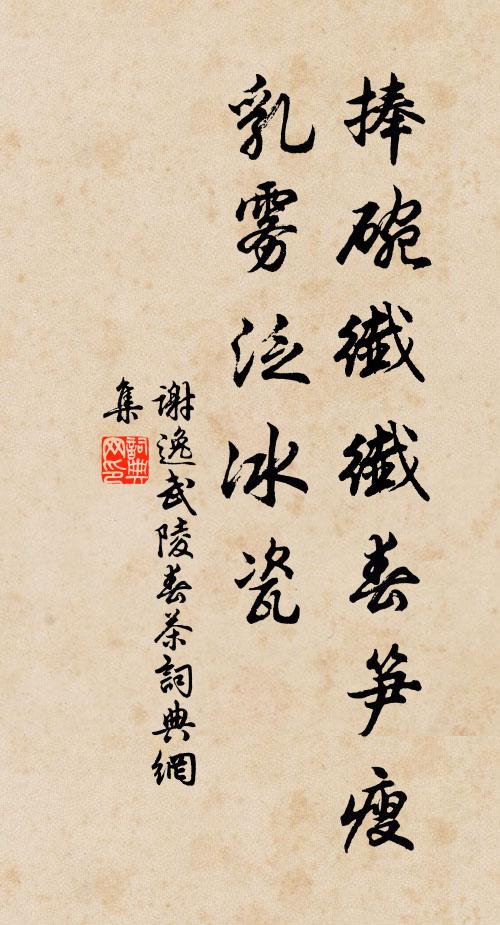 捧碗纖纖春笋瘦
乳雾泛冰瓷
谢逸武陵春茶詞典網
集
詞典
网印